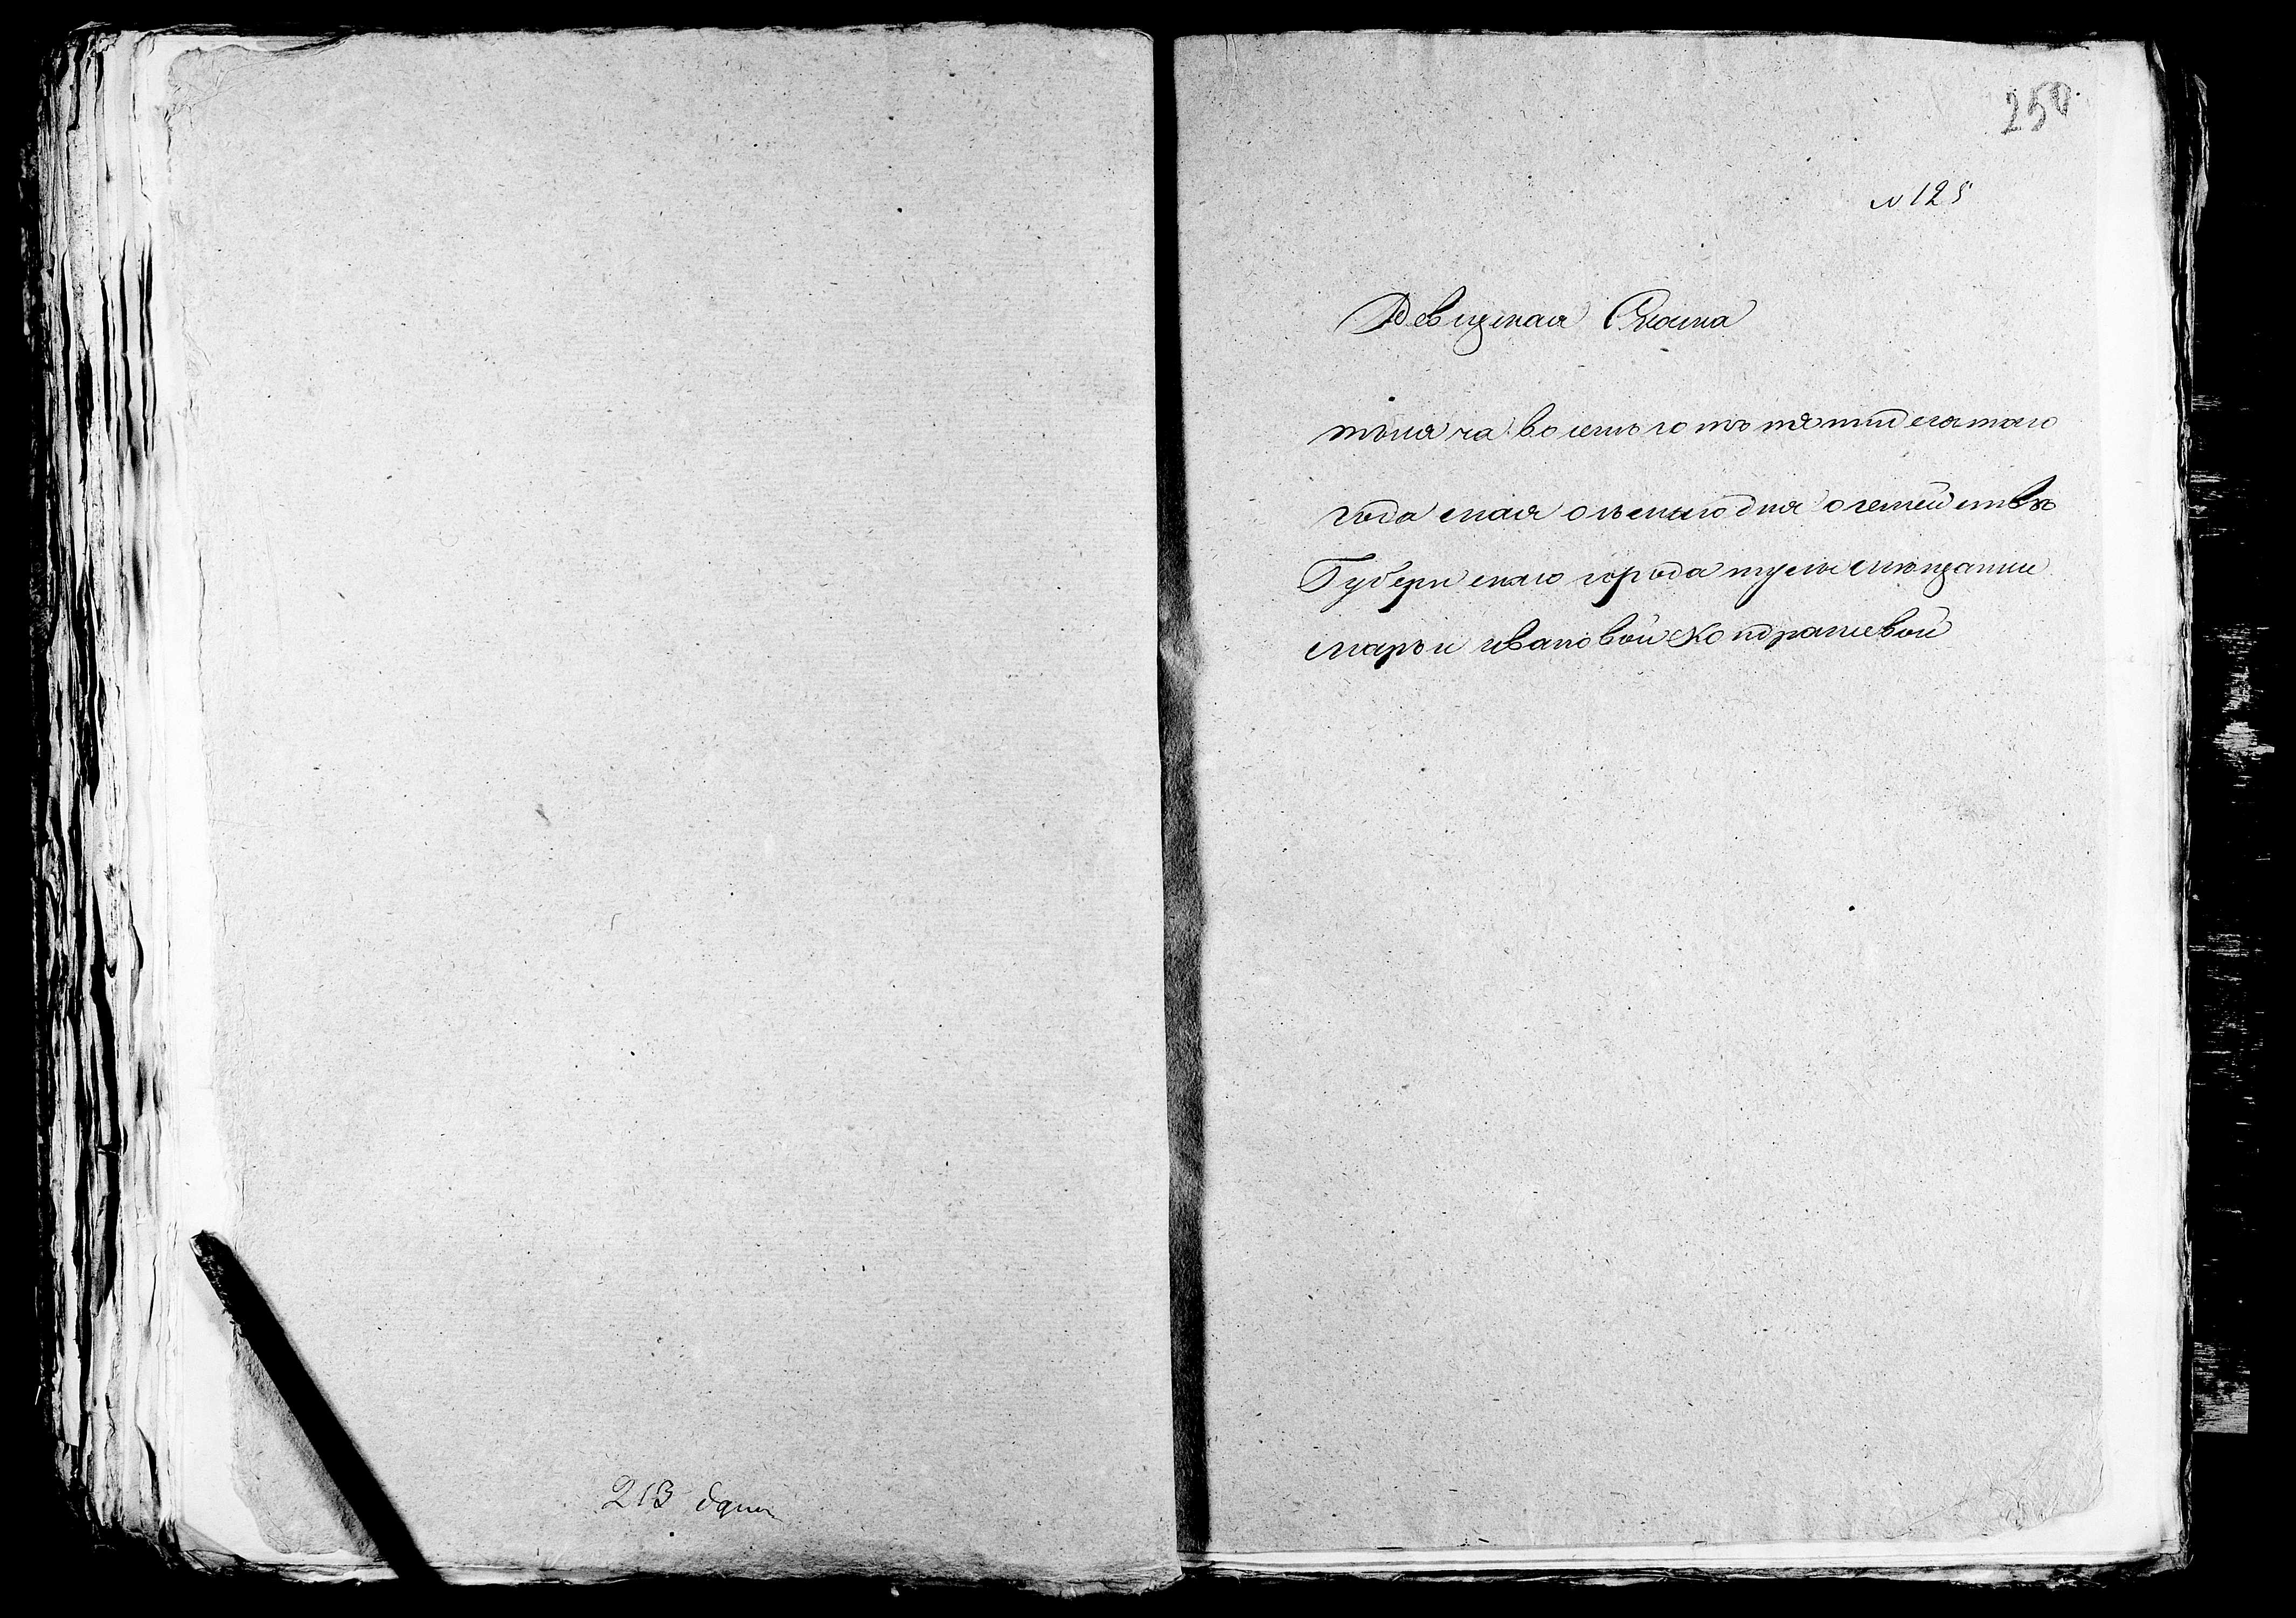 250
№ 125
Ревизская Скаска
тысяча восемьсотъ пятидесятаго
года мая осьмаго дня о семействѣ
Губернскаго города тулы мѣщанки
марьи ивановой Кондрашевой
213